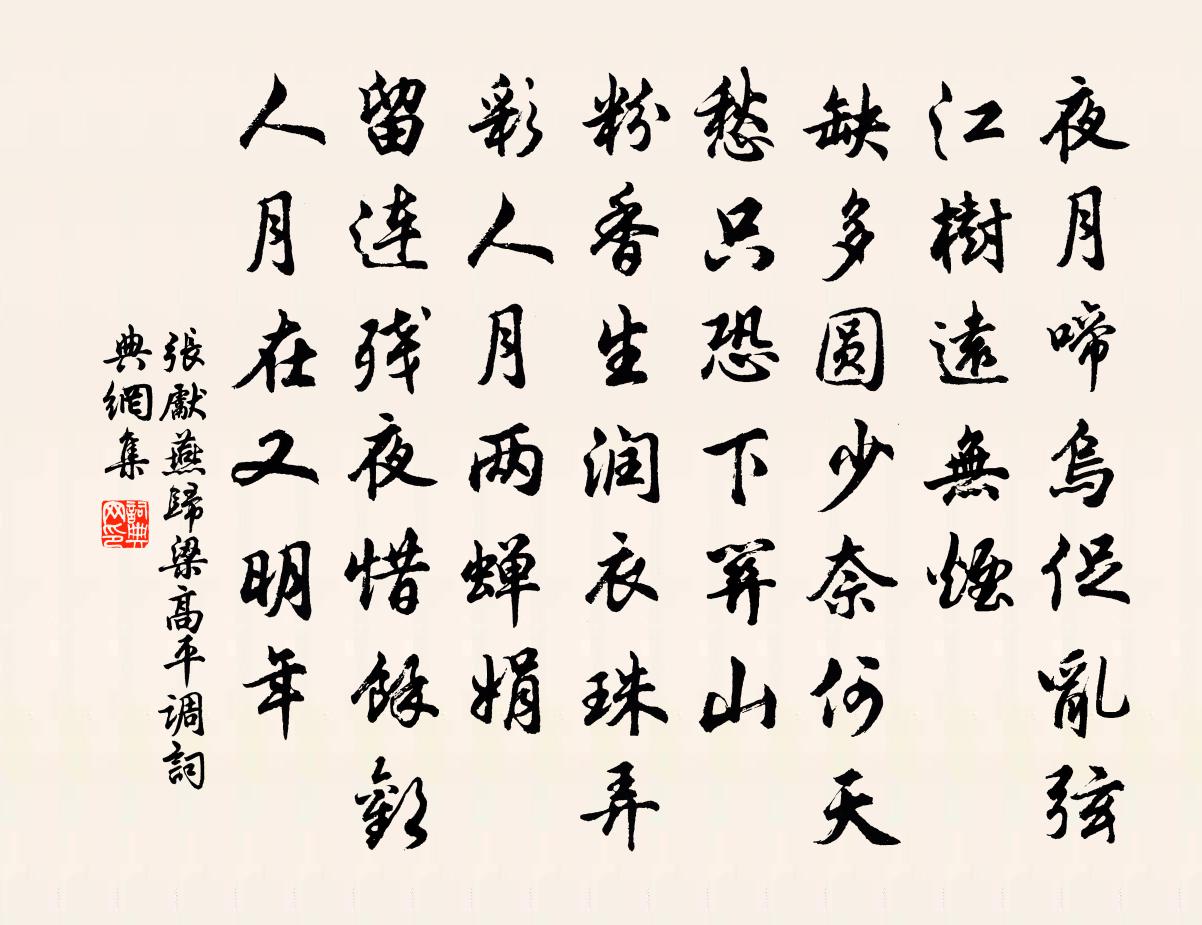 夜月啼烏促亂弦
江樹遠無煙
缺多圆少奈何天
愁只恐下关山
粉香生润衣珠弄
彩人月两蝉娟
留連残夜惜餘歡
人月在又明年
張獻燕歸梁高平调詞
典網集
詞典网印